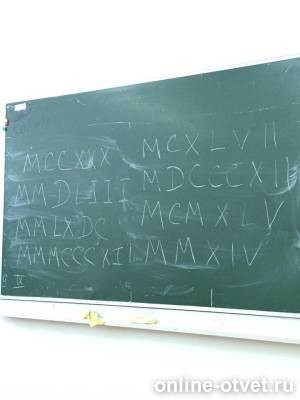 MCCXXX
MMDLIII
MMLXDC
MMMCCCXII
IX
MCXLVII
MDCCCXII
MCMXLV
MMXIV
online-otvet.ru